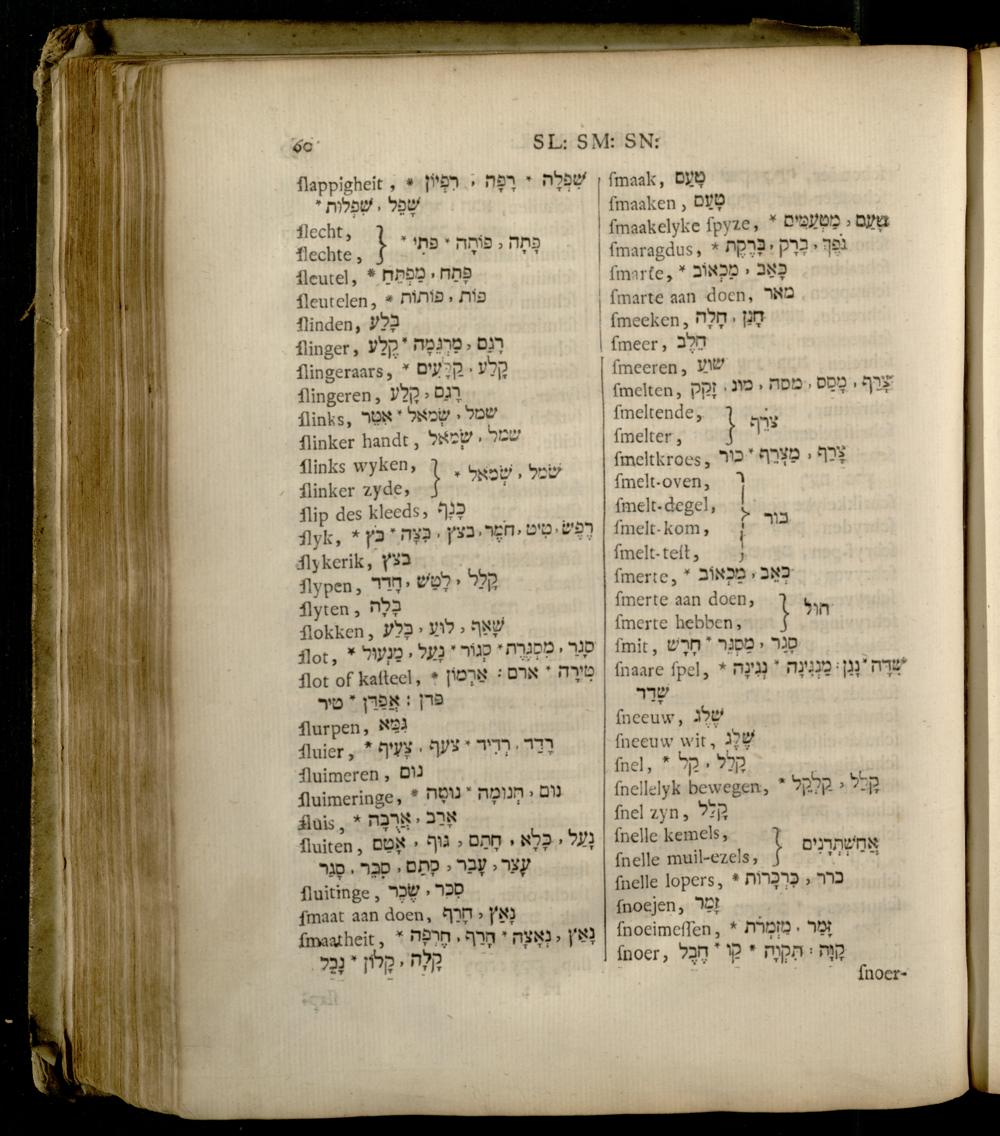 60
SL: SM: SN:
ſlappigheit, * שִׁפְלָה * רָפָה, רִפְיוֹן
* שָׁפֵל, שִׁפְלוּת
ſlecht,
ſlechte, } * פָּתָה, פּוֹתָה * פתי
ſleutel, * פָּתַח, מַפְתֵּחַ
ſleutelen, * פות, פותות
ſlinden, בָּלַע
ſlinger, רָגַם, מַרְגֵּמָה * קֶלַע
ſlingeraars, * קָלַע, קַלָּעִים
ſlingeren, רָגַם, קָלַע
ſlinks, שמל, שְׂמֹאל * אִטֵּר
ſlinker handt, שמל, שְׂמֹאל
ſlinks wyken,
ſlinker zyde, } * שמל, שְׂמֹאל
ſlip des kleeds, כָּנָף
ſlyk, * רֶפֶשׁ, טִיט, חֹמֶר, בצץ, בִּצָּה * בֹּץ
ſlykerik, בצץ
ſlypen, קָלַל, לָטַשׁ, חָדַד
ſlyten, בָּלָה
ſlokken, שָׁאַף, לוּעַ, בָּלַע
ſlot, * סָגַר, מִסְגֶּרֶת * סְגוֹר * נָעַל, מַנְעוּל
ſlot of kaſteel, * טִירָה * ארם : אַרְמוֹן
פרן : אַפַּדֶן * טיר
ſlurpen, גָּמָא
ſluier, * רָדַד, רְדִיד * צעף, צָעִיף
ſluimeren, נום
ſluimeringe, * נום, תְּנוּמָה * נוּמָה
ſluis, * אָרַב, אֲרֻבָּה
ſluiten, נָעַל, כָּלָא, חָתַם, גּוּף, אָטַם
עָצַר, עָבַר, סָתַם, סָכַר, סָגַר
ſluitinge, סכר, שֶׂכֶר
ſmaat aan doen, נָאַץ, חָרַף
ſmaatheit, * נָאַץ, נְאָצָה * חָרַף, חֶרְפָּה
קָלָה, קָלוֹן * נָבַל
ſmaak, טָעַם
ſmaaken, טָעַם
ſmaakelyke ſpyze, * טָעַם, מַטְעַמִּים
ſmaragdus, * נֹפֶךְ, בָּרָק, בָּרֶקֶת
ſmarte, * כָּאַב, מַכְאוֹב
ſmarte aan doen, מאר
ſmeeken, חָנַן, חָלָה
ſmeer, חֵלֶב
ſmeeren, שׁוע
ſmelten, צָרַף, מָסַס, מסה, מוג, זָקַק
ſmeltende,
ſmelter, } צֹרֵף
ſmeltkroes, צָרַף, מַצְרֵף * כור
ſmelt-oven,
ſmelt-degel,
ſmelt-kom,
ſmelt-teſt, } כור
ſmerte, * כָּאַב, מַכְאוֹב
ſmerte aan doen,
ſmerte hebben, } חול
ſmit, סָגַר, מַסְגֵּר * חָרָשׁ
ſnaare ſpel, * שִׁדָּה * נָגַן : מַנְגִּינָה * נְגִינָה
שָׁדַד
ſneeuw, שֶׁלֶג
ſneeuw wit, שָׁלַג
ſnel, * קָלַל, קַל
ſnellelyk bewegen, * קָלַל, קִלְקֵל
ſnel zyn, קָלַל
ſnelle kemels,
ſnelle muil-ezels, } אֲחַשְׁתְּרָנִים
ſnelle lopers, * כרר, כִּרְכָּרוֹת
ſnoejen, זָמַר
ſnoeimeſſen, * זָמַר, מַזְמֵרֹת
ſnoer, קָוָה : תִּקְוָה * קַו * חֶבֶל
ſnoer-